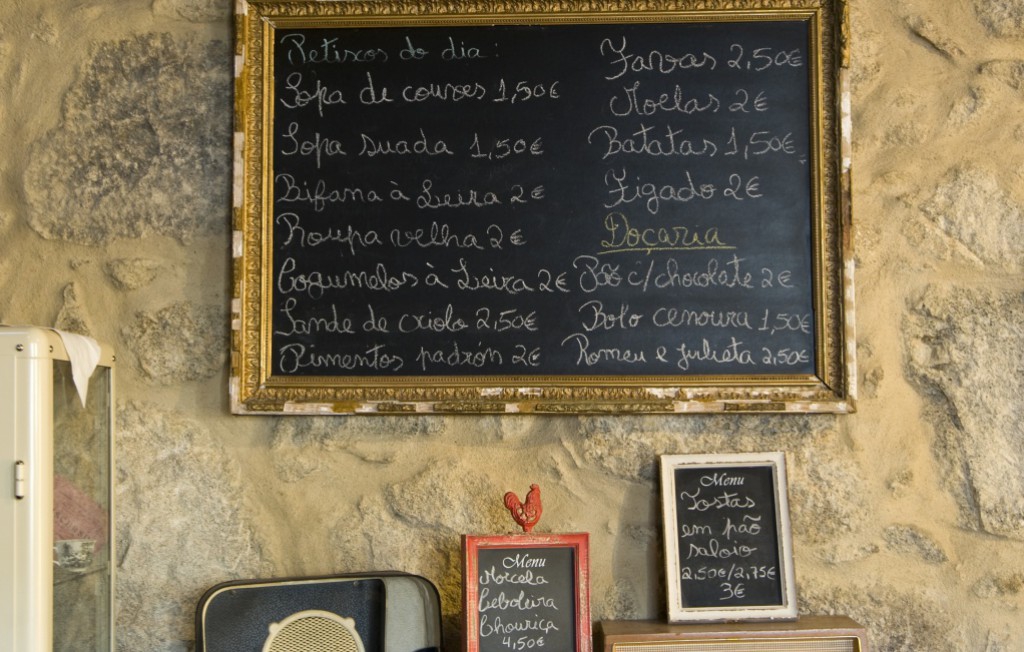 Petiscos do dia:
Sopa de couves 1,50€
Sopa suada 1,50€
Bifana à Leira 2€
Roupa velha 2€
Cogumelos à Leira 2€
Sande de criolo 2,50€
Pimentos padrón 2€
Favas 2,50€
Moelas 2€
Batatas 1,50€
Figado 2€
Doçaria
Pão c/chocolate 2€
Bolo cenoura 1,50€
Romeu e Julieta 2,50€
Menu
Morcela
Ceboleira
Chouriça
4,50€
Menu
Tostas
em pão
saloio
2,50€/2,75€
3€